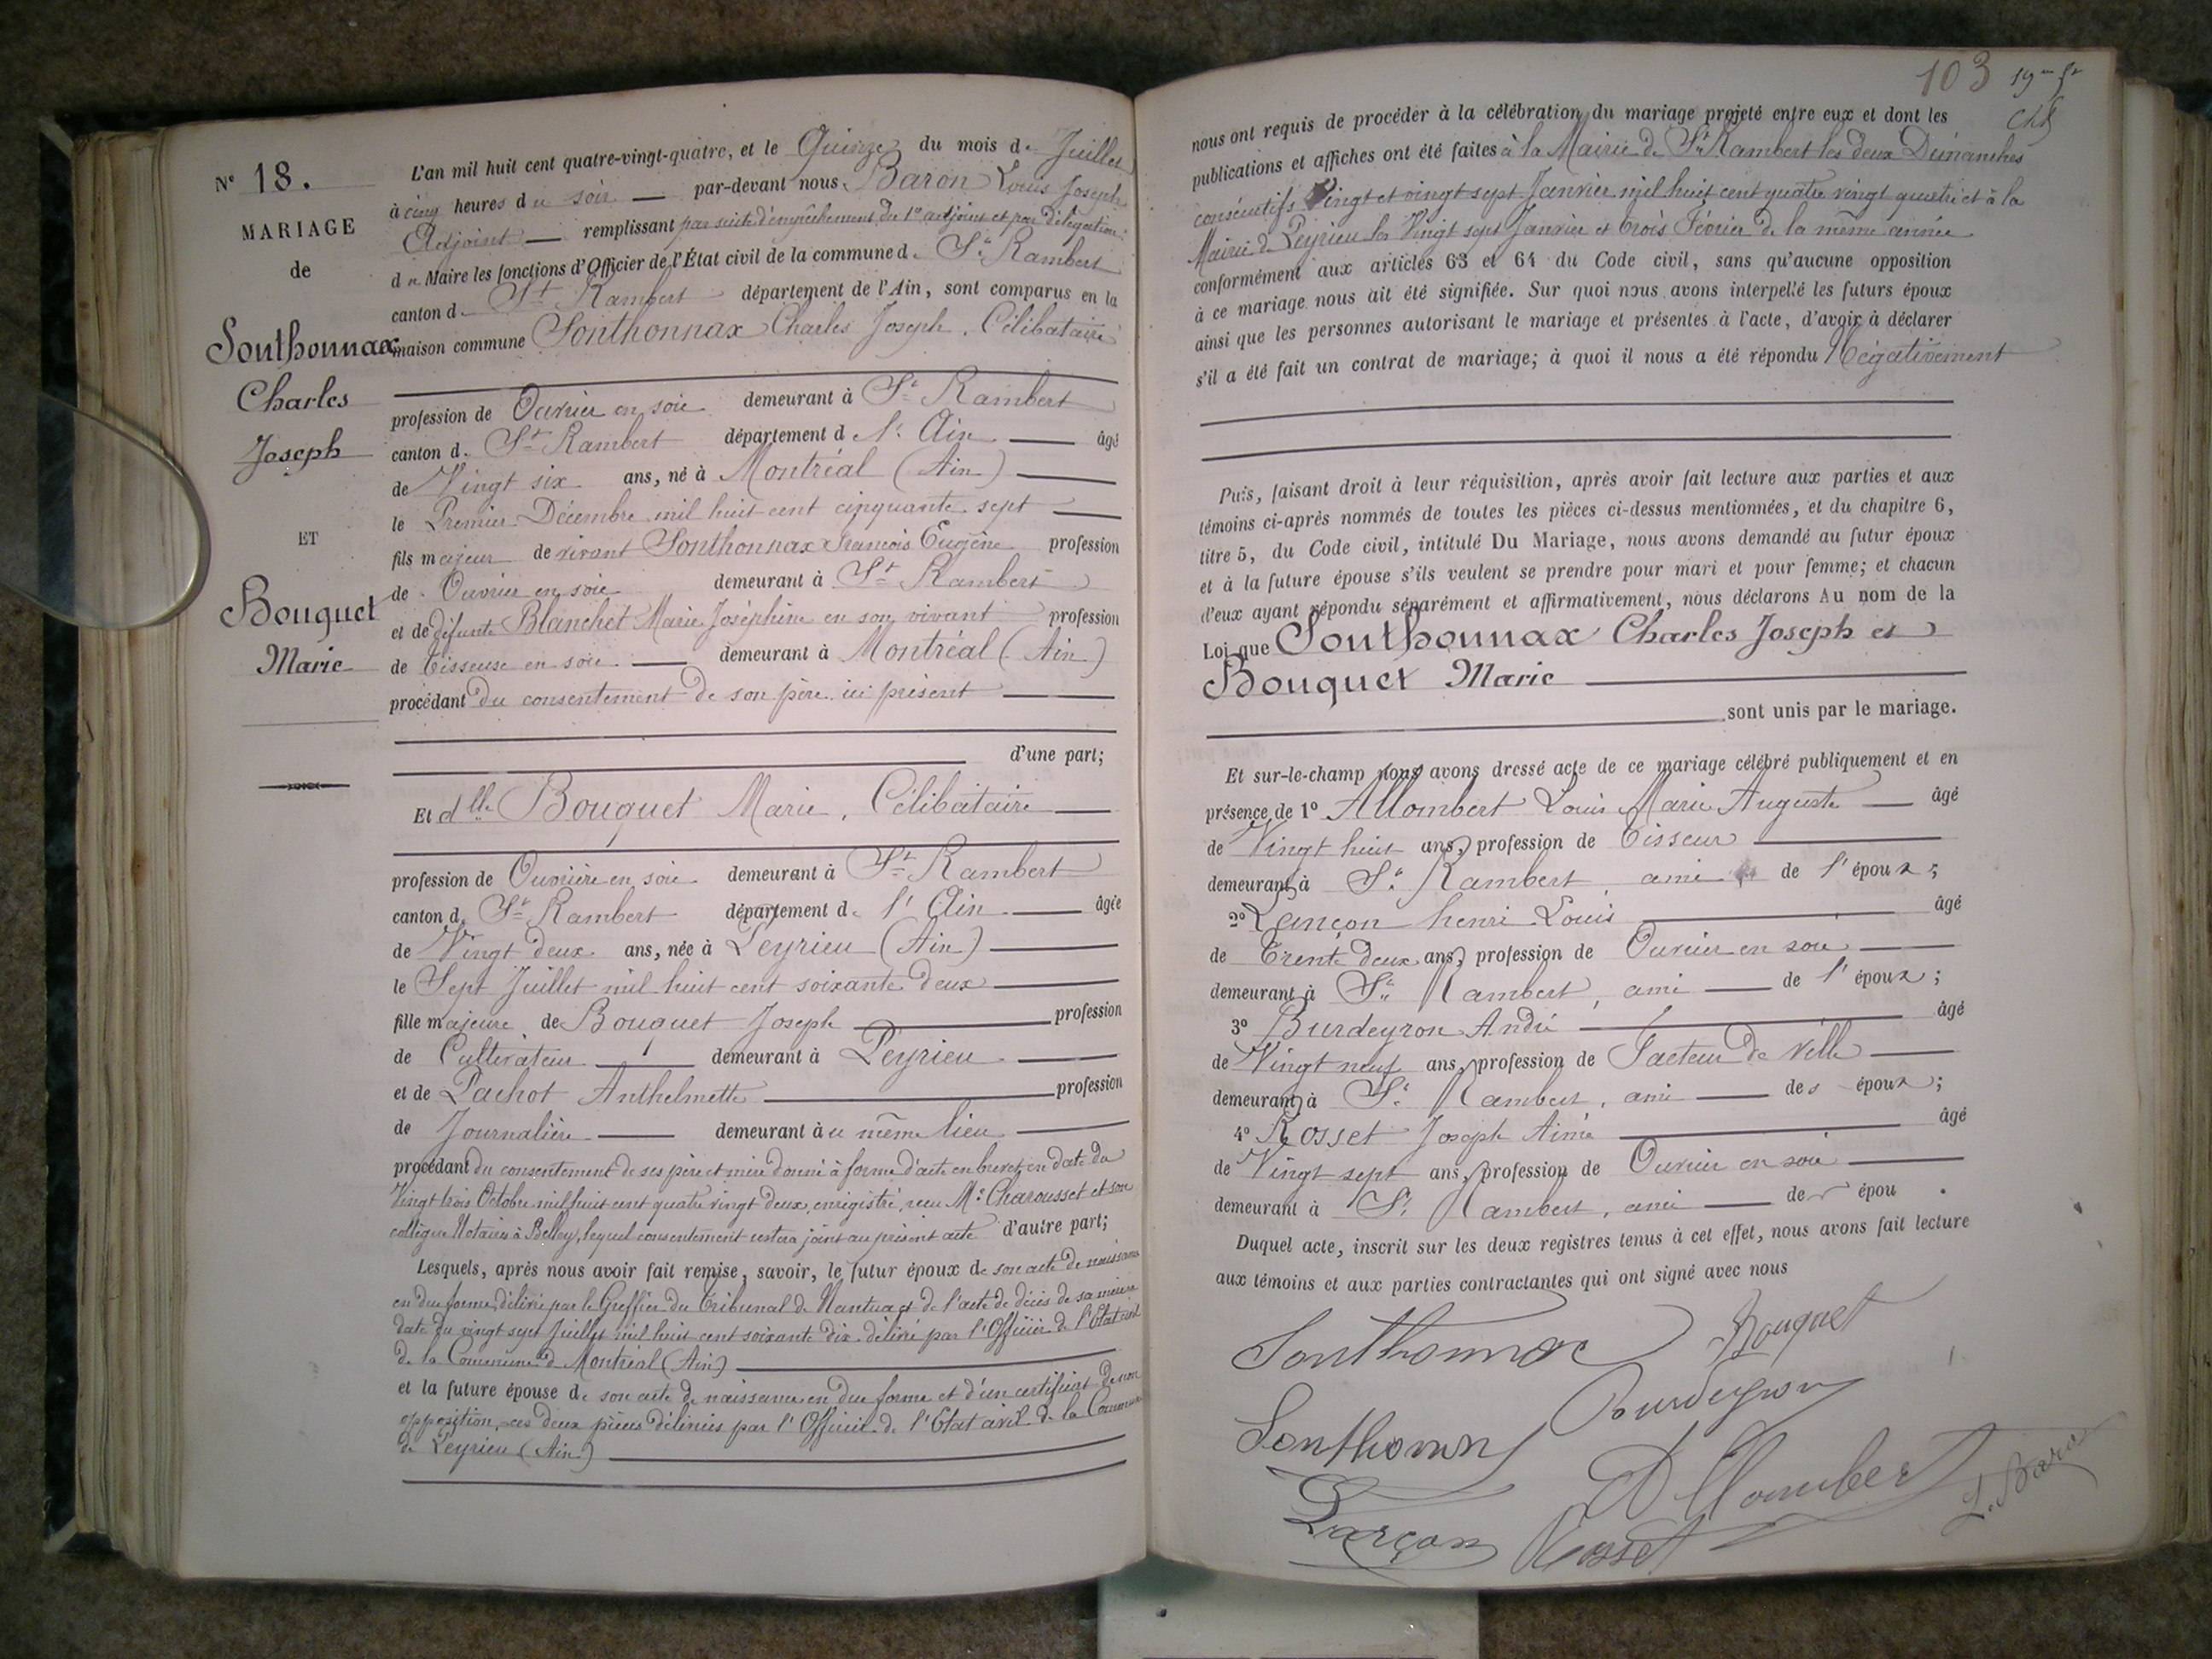 N° 18.
MARIAGE
de
Sonthonnax
Charles
Joseph
ET
Bouquet
Marie
L'an mil huit cent quatre-vingt-quatre, et le Quinze du mois de Juillet
à cinq heures du soir par-devant nous, Baron Louis Joseph
Adjoint remplissant par suite d'empêchement du 1er adjoint et par délégation
du Maire les fonctions d'Officier de l'État civil de la commune de St Rambert
canton de St Rambert département de l'Ain, sont comparus en la
maison commune Sonthonnax Charles Joseph, Célibataire
profession de Ouvrier en soie demeurant à St Rambert
canton de St Rambert département de l'Ain âgé
de Vingt six ans, né à Montréal (Ain)
le Premier Décembre mil huit cent cinquante sept
fils majeur de vivant Sonthonnax François Eugène profession
de Ouvrier en soie demeurant à St Rambert
et de défunte Blanchet Marie Joséphine en son vivant profession
de Tisseuse en soie demeurant à Montréal (Ain)
procédant du consentement de son père ici présent
d'une part;
Et dlle Bouquet Marie, Célibataire
profession de Ouvrière en soie demeurant à St Rambert
canton de St Rambert département de l'Ain âgée
de Vingt deux ans, née à Peyrieu (Ain)
le Sept Juillet mil huit cent soixante deux
fille majeure de Bouquet Joseph profession
de Cultivateur demeurant à Peyrieu
et de Pachot Anthelmette profession
de Journalière demeurant au même lieu
procédant du consentement de ses père et mère donné à forme d'acte en brevet en date du
Vingt trois Octobre mil huit cent quatre vingt deux, enregistré, reçu Me Charousset et son
collègue Notaires à Belley, lequel consentement restera joint au présent acte d'autre part;
Lesquels, après nous avoir fait remise, savoir, le futur époux de son acte de naissance
en due forme délivré par le Greffier du Tribunal de Nantua et de l'acte de décès de sa mère
date du vingt sept Juillet mil huit cent soixante dix délivré par l'Officier de l'Etat civil
de la Commune de Montréal (Ain)
et la future épouse de son acte de naissance en due forme et d'un certificat de non
opposition, ces deux pièces délivrés par l'Officier de l'Etat civil de la Commune
de Peyrieu (Ain)
103 19
nous ont requis de procéder à la célébration du mariage projeté entre eux et dont les
publications et affiches ont été faites à la Mairie de St Rambert les deux Dimanches
consécutifs Vingt et vingt sept Janvier mil huit cent quatre vingt quatre et à la
Mairie de Peyrieu les Vingt sept Janvier et trois Février de la même année
conformément aux articles 63 et 64 du Code civil, sans qu'aucune opposition
à ce mariage nous ait été signifiée. Sur quoi nous avons interpellé les futurs époux
ainsi que les personnes autorisant le mariage et présentes à l'acte, d'avoir à déclarer
s'il a été fait un contrat de mariage; à quoi il nous a été répondu Négativement
Puis, faisant droit à leur réquisition, après avoir fait lecture aux parties et aux
témoins ci-après nommés de toutes les pièces ci-dessus mentionnées, et du chapitre 6,
titre 5, du Code civil, intitulé Du Mariage, nous avons demandé au futur époux
et à la future épouse s'ils veulent se prendre pour mari et pour femme; et chacun
d'eux ayant répondu séparément et affirmativement, nous déclarons Au nom de la
Loi que Sonthonnax Charles Joseph et
Bouquet Marie
sont unis par le mariage.
Et sur-le-champ nous avons dressé acte de ce mariage célébré publiquement et en
présence de 1° Allombert Louis Marie Auguste âgé
de Vingt huit ans, profession de Tisseur
demeurant à St Rambert, ami de l'époux;
2° Lançon henri Louis âgé
de Trente deux ans, profession de Ouvrier en soie
demeurant à St Rambert, ami de l'époux;
3° Burdeyron André âgé
de Vingt neuf ans, profession de Facteur de ville
demeurant à St Rambert, ami des époux;
4° Rosset Joseph Aimé âgé
de Vingt sept ans, profession de Ouvrier en soie
demeurant à St Rambert, ami des épou .
Duquel acte, inscrit sur les deux registres tenus à cet effet, nous avons fait lecture
aux témoins et aux parties contractantes qui ont signé avec nous
Sonthonnax Bouquet
Burdeyron
Sonthonnax
Allombert L. Baron
Lançon Rosset